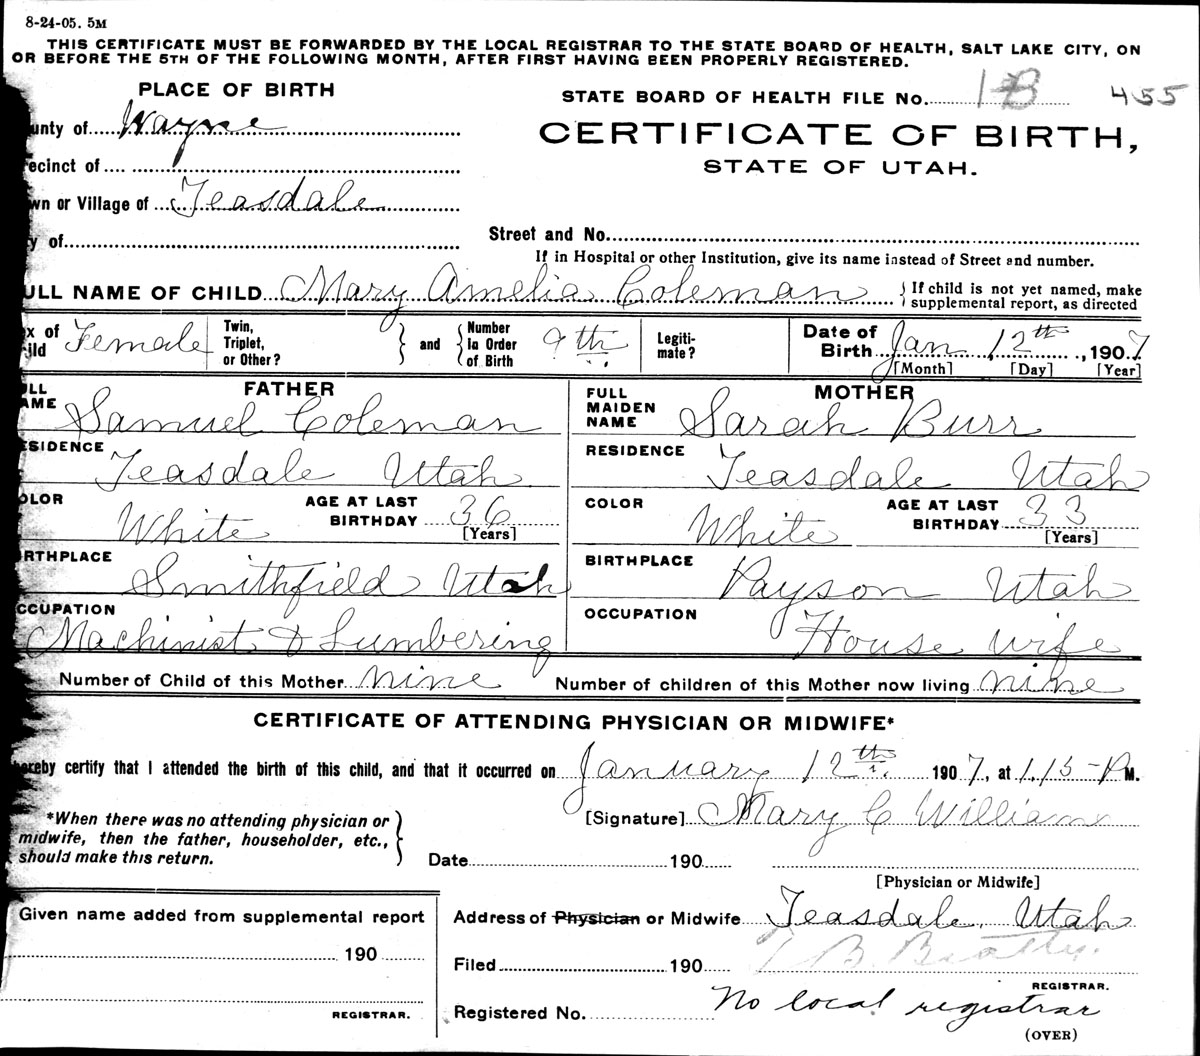 8-24-05. 5M
THIS CERTIFICATE MUST BE FORWARDED BY THE LOCAL REGISTRAR TO THE STATE BOARD OF HEALTH, SALT LAKE CITY, ON
OR BEFORE THE 5TH OF THE FOLLOWING MONTH, AFTER FIRST HAVING BEEN PROPERLY REGISTERED.
PLACE OF BIRTH
STATE BOARD OF HEALTH FILE No. 455
unty of Wayne
CERTIFICATE OF BIRTH,
STATE OF UTAH.
ecinct of
wn or Village of Teasdale
y of
Street and No.
If in Hospital or other Institution, give its name instead of Street and number.
ULL NAME OF CHILD Mary Amelia Coleman { If child is not yet named, make
supplemental report, as directed
x of
ild Female
Twin,
Triplet,
or Other?
} and {
Number
in Order
of Birth 9th
Legiti-
mate?
Date of
Birth Jan 12th, 1907
[Month] [Day] [Year]
FATHER
LL
AME Samuel Coleman
MOTHER
FULL
MAIDEN
NAME Sarah Burr
SIDENCE Teasdale Utah
RESIDENCE Teasdale Utah
OLOR White
AGE AT LAST
BIRTHDAY 36
[Years]
COLOR White
AGE AT LAST
BIRTHDAY 33
[Years]
RTHPLACE Smithfield Utah
BIRTHPLACE Payson Utah
CCUPATION Machinist & Lumbering
OCCUPATION House wife
Number of Child of this Mother nine Number of children of this Mother now living nine
CERTIFICATE OF ATTENDING PHYSICIAN OR MIDWIFE*
ereby certify that I attended the birth of this child, and that it occurred on January 12th, 1907, at 1.15-P M.
*When there was no attending physician or
midwife, then the father, householder, etc.,
should make this return.
[Signature] Mary C Williams
Date 190
[Physician or Midwife]
Given name added from supplemental report
190
REGISTRAR.
Address of Physician or Midwife Teasdale, Utah
Filed 190 B. Beatty.
REGISTRAR.
Registered No. No local registrar
(OVER)